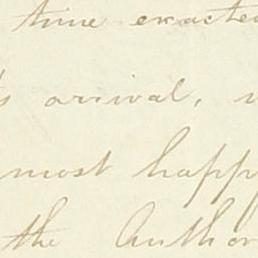 time exacte
's arrival,
most happy
the Author